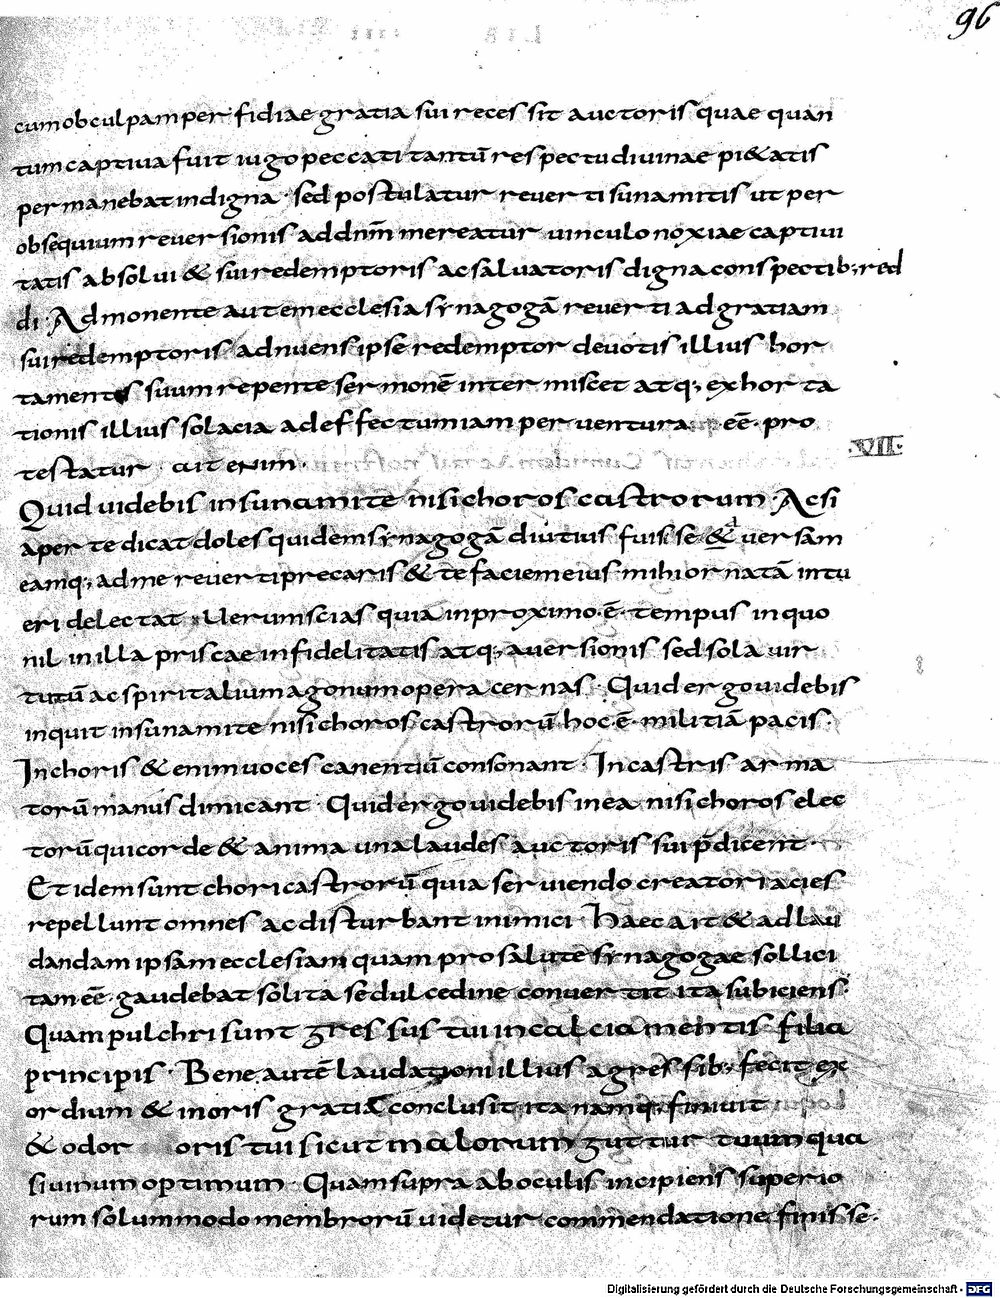 96
cum ob culpam perfidiae gratia sui recessit auctoris quae quan
tum captiua fuit iugo peccati tantū respectu diuinae pi&atis
permanebat indigna · sed postulatur reuerti sunamitis ut per
obsequium reuersionis ad dnm̄ mereatur uinculo noxiae captiui
tatis absolui & sui redemptoris ac saluatoris digna conspectib; red
di · Admonente autem ecclesia synagogā reuerti ad gratiam
sui redemptoris adnuens ipse redemptor deuotis illius hor
tamentis suum repente sermonē inter miscet atq; exhorta
tionis illius solacia ad effectum iam peruentura eē · pro
testatur · ait enim ·
·VII·
Quid uidebis in sunamite nisi choros castrorum Ac si
aperte dicat doles quidem synagogā diutius fuisse & uersam
eamq; ad me reuerti precaris & te faciem eius mihi ornatā intu
eri delectat · Uerum scias quia in proximo · ē · tempus in quo
nil in illa priscae infidelitatis atq; auersionis sed sola uir
tutū ac spiritalium agonum opera cernas · Quid ergo uidebis
inquit in sunamite nisi choros castrorū hoc ē · militiā pacis ·
In choris & enim uoces canentiū consonant · In castris arma
torū manus dimicant · Quid ergo uidebis in ea nisi choros elec
torū qui corde & anima una laudes auctoris sui p̄dicent ·
Et idem sunt chori castrorū quia seruiendo creatori acies
repellunt omnes ac disturbant inimici · Haec ait & ad lau
dandam ipsam ecclesiam quam pro salute synagogae sollici
tam eē · gaudebat solita se dulcedine conuertit ita subiciens ·
Quam pulchri sunt gressus tui in calciamentis filia
principis · Bene autē laudationi illius a gressib; fecit ex
ordium & in oris gratia conclusit ita namq; finiuit
& odor oris tui sicut malorum guttur tuum qua
si uinum optimum · Quam supra ab oculis incipiens superio
rum solummodo membrorū uidetur commendatione finisse ·
Digitalisierung gefördert durch die Deutsche Forschungsgemeinschaft - DFG